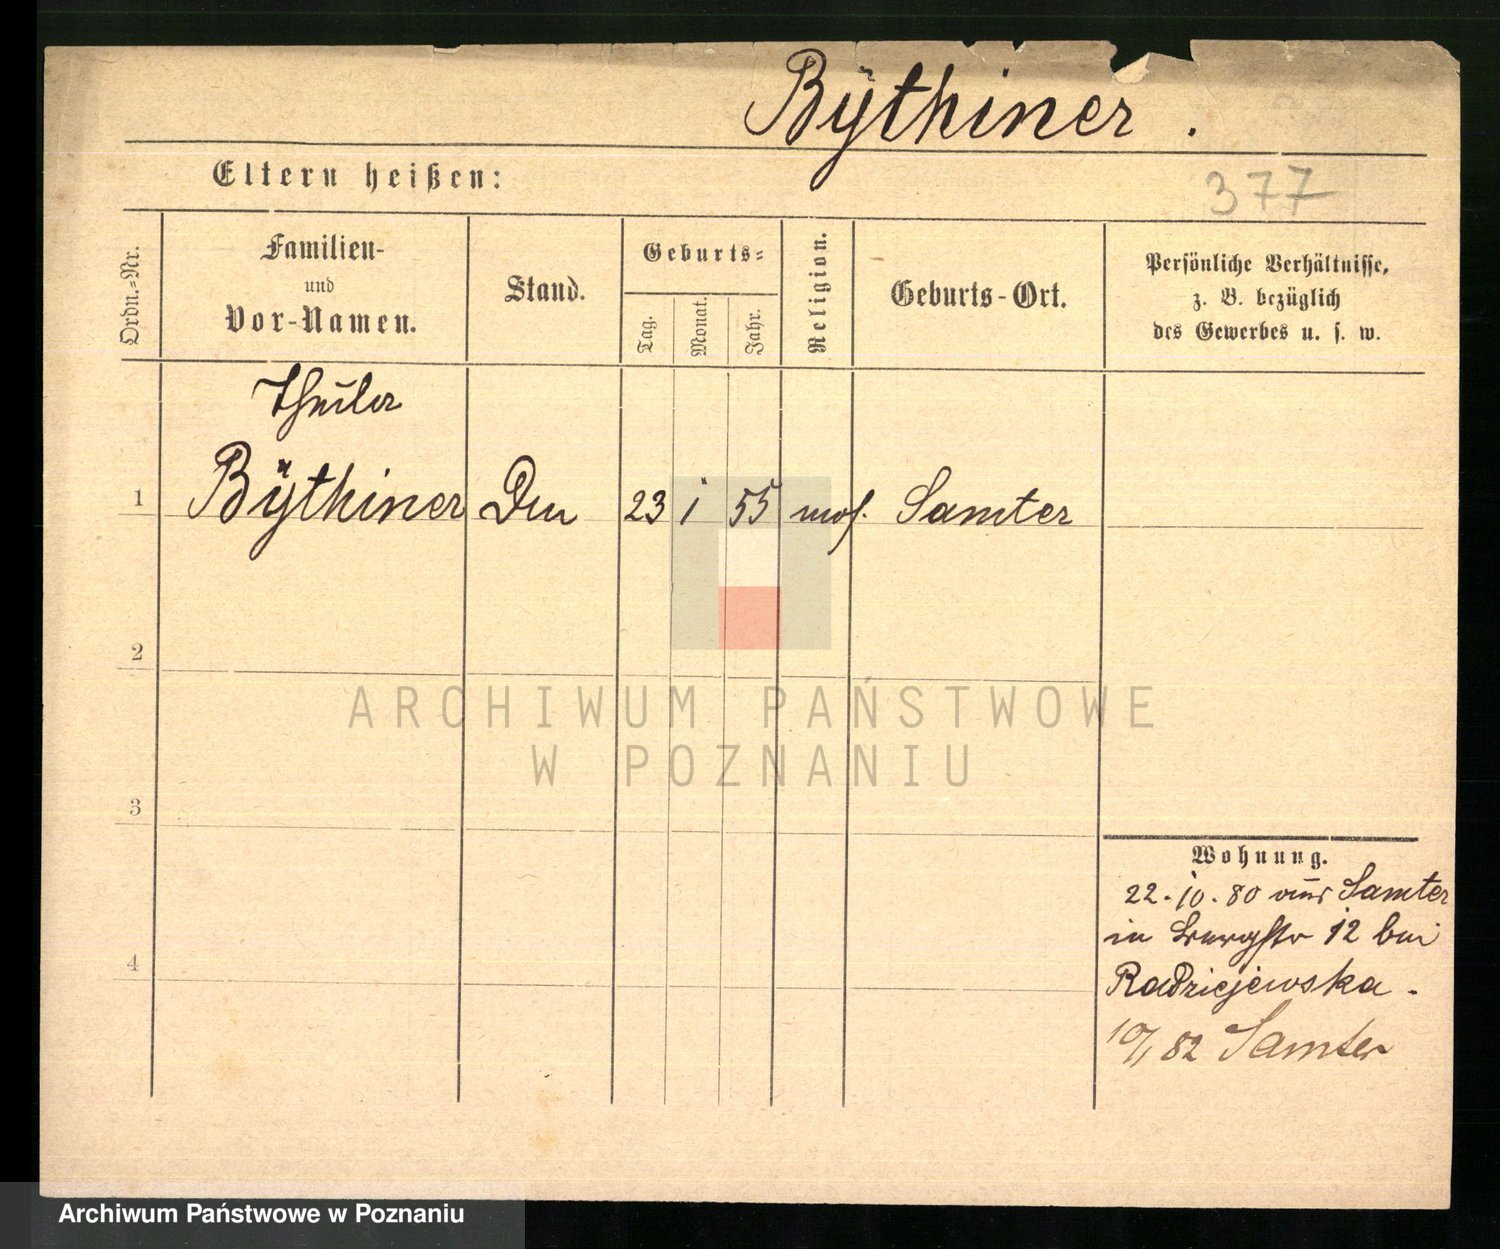 Bÿthiner.
Eltern heißen:
377
Ordn.-Nr.
Familien-
und
Vor-Namen.
Stand.
Geburts-
Tag.
Monat.
Jahr.
Religion.
Geburts-Ort.
Persönliche Verhältnisse,
z. B. bezüglich
des Gewerbes u. s. w.
1 Bÿthiner 23 1 55 mos. Samter
2
3
4
Wohnung.
22.10.80 aus Samter
in 12 bei
Radziejewska.
10/1 82 Samter
ARCHIWUM PAŃSTWOWE
W POZNANIU
Archiwum Państwowe w Poznaniu